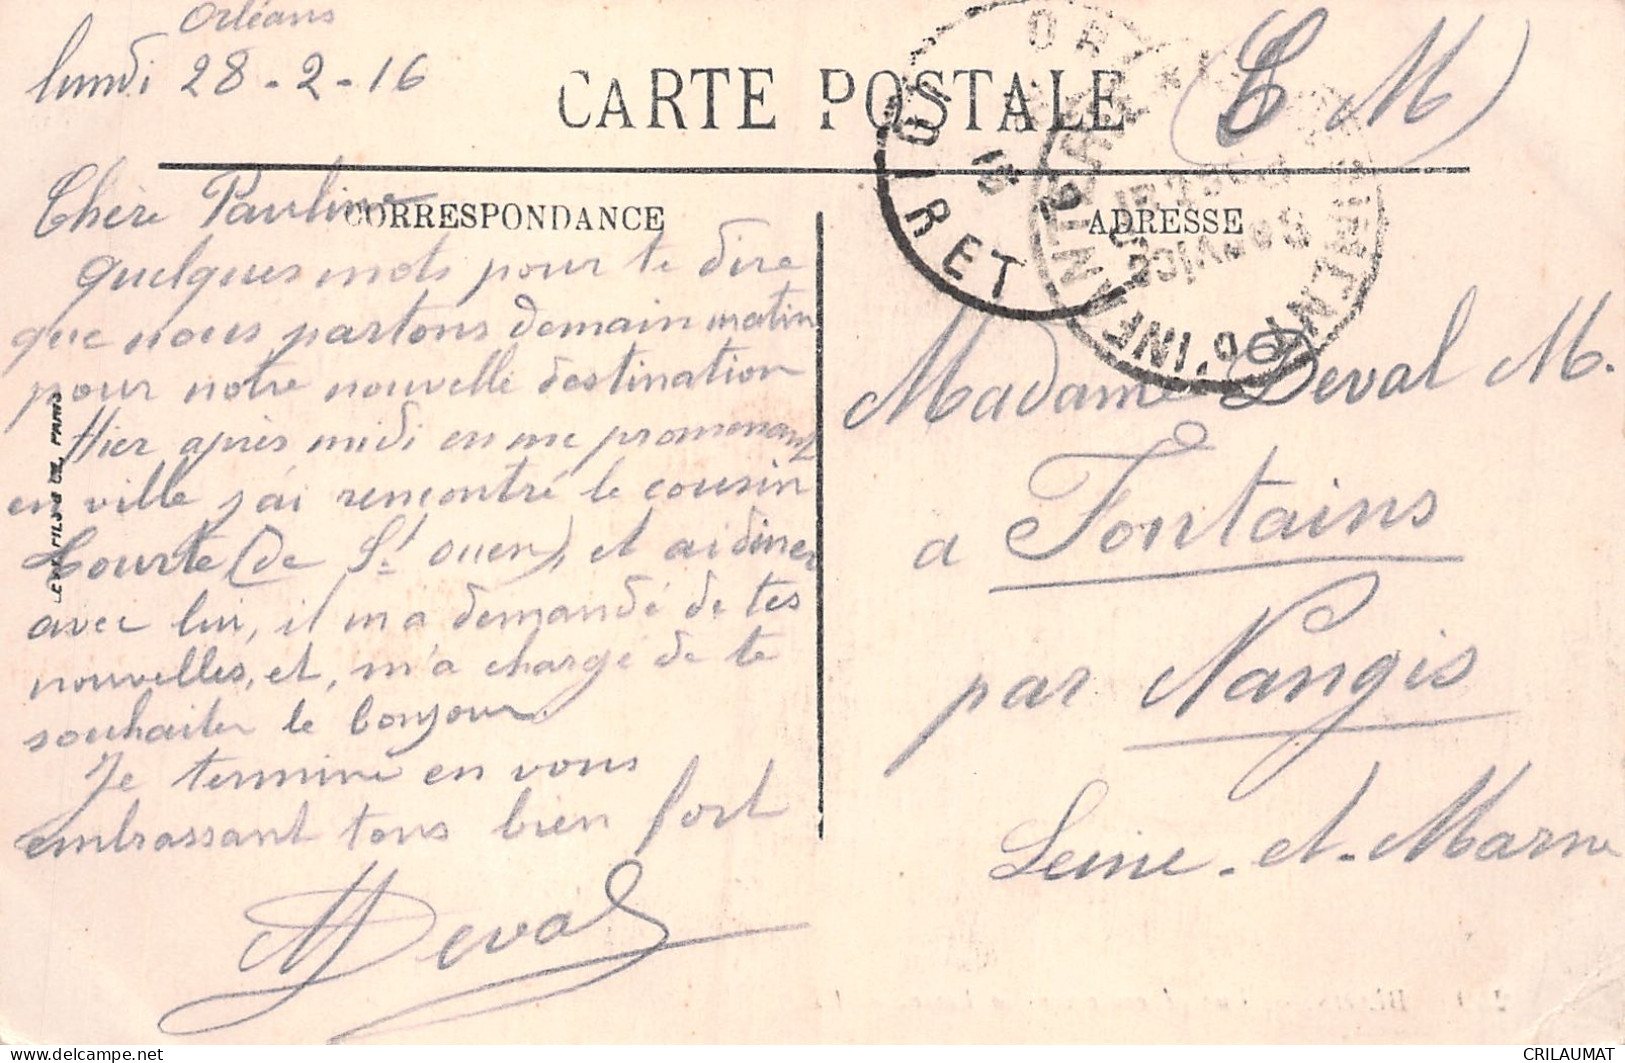 Orléans
lundi 28-2-16
CARTE POSTALE
(C M)
CORRESPONDANCE
ADRESSE
Chère Pauline
quelques mots pour te dire
que nous partons demain matin
pour notre nouvelle destination
Hier après midi en me promenant
en ville j'ai rencontré le cousin
Courte (de St Ouen), et ai diner
avec lui, il m'a demandé de tes
nouvelles, et, m'a chargé de te
souhaiter le bonjour.
Je termine en vous
embrassant tous bien fort
M Deval
Madame Deval M.
a Fontains
par Nangis
Seine-et-Marne
LOIRET
INFANTERIE
D'INF
Service
LEVY FILS & CIE, PARIS
CRILAUMAT